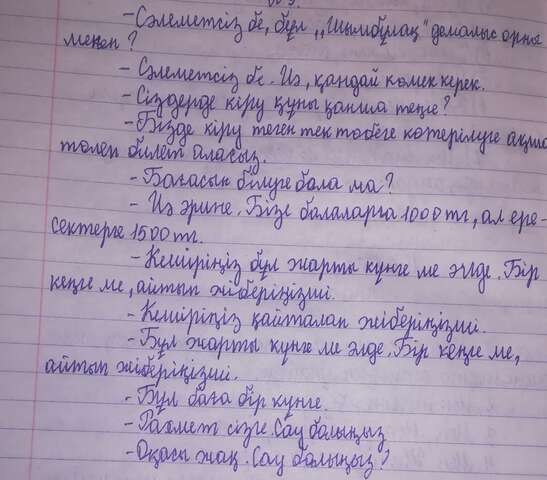 - Сәлеметсіз бе, бұл ,,Шымбұлақ" демалыс орны
ма екен?
- Сәлеметсіз бе. Иә, қандай көмек керек.
- Сіздерде кіру құны қанша теңге?
- Бізде кіру тегін тек төбеге көтерілуге ақша
төлеп билет аласыз.
- Бағасын білуге бола ма?
- Иә әрине. Бізде балаларға 1000 тг, ал ере-
сектерге 1500 тг.
- Кешіріңіз бұл жарты күнге ме әлде. Бір
күнге ме, айтып жіберіңізші.
- Кешіріңіз қайталап жіберіңізші.
- Бұл жарты күнге ме әлде. Бір күнге ме,
айтып жіберіңізші.
- Бұл баға бір күнге.
- Рахмет сізге. Сау болыңыз
- Оқасы жоқ. Сау болыңыз!